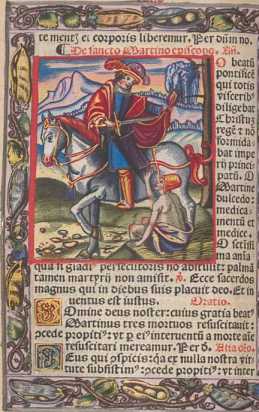 te mentis et corporis liberemur. Per dūm no.
De sancto Martino episcopo. Añ.
O beatū
pontificē
qui totis
visceribꝰ
diligebat
Christū
regē & nō
formida
bat impe
rij princi
patū. O
Martine
dulcedo:
medica
mentū et
medice.
O sctissi
ma aīa
quā si gladiꝰ persecutoris nō abstulit: palmā
tamen martyrij non amisit. ℣. Ecce sacerdos
magnus qui in diebus suis placuit deo. Et in
uentus est iustus. Oratio.
Domine deus noster: cuius gratia beatꝰ
Martinus tres mortuos resuscitauit:
ꝓcede propitiꝰ: vt
resuscitari mereamur. Per Alia
Deus qui ꝓspicis: qa ex nulla nostra vir
tute subsistimꝰ: ꝓcede propitiꝰ: vt inter